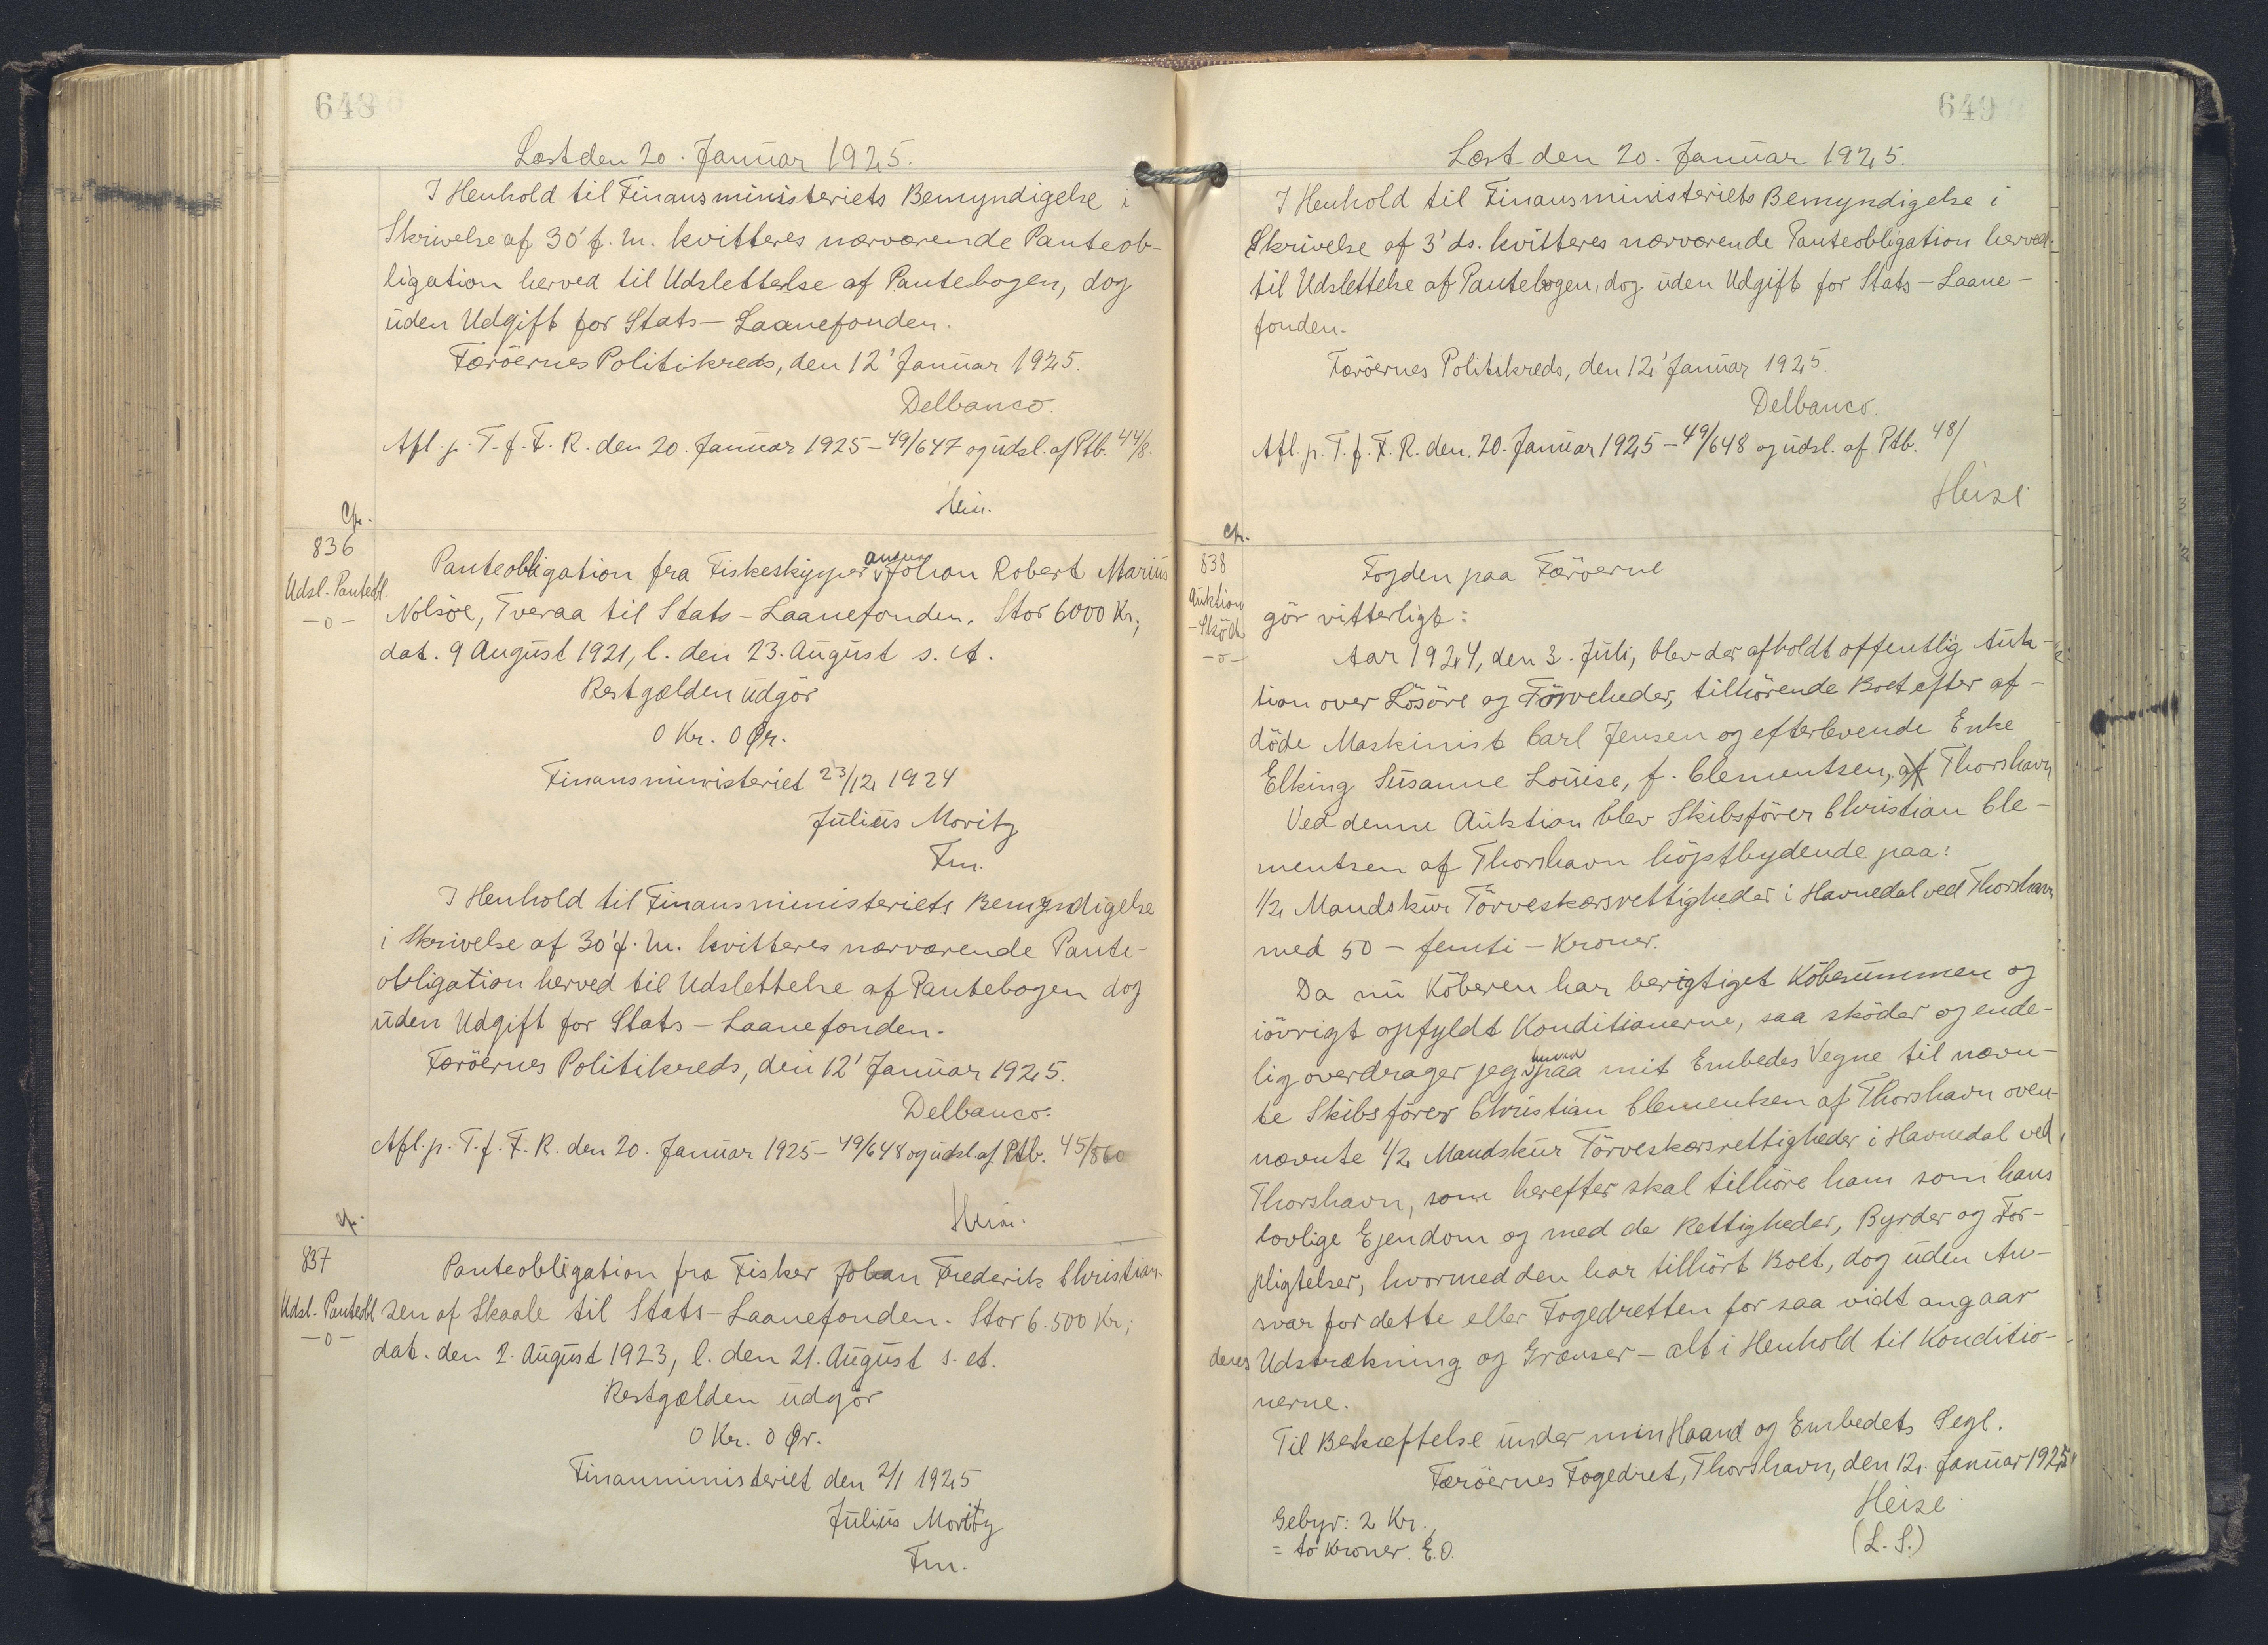 648
Læst den 20. Januar 1925.
I Henhold til Finansministeriets Bemyndigelse i
Skrivelse af 30' f. M. kvitteres nærværende Panteob-
ligation herved til Udslettelse af Pantebogen, dog
uden Udgift for Stats-Laanefonden.
Færöernes Politikreds, den 12' Januar 1925.
Delbanco.
Afl. p. T. f. F. R. den 20. Januar 1925 - 49/647 og udsl. af Ptb. 44/8.
Cfr.
836
Udsl. Panteobl.
-o-
Panteobligation fra Fiskeskipper Johan Robert Marius
Nolsöe, Tveraa til Stats-Laanefonden. Stor 6000 Kr.,
dat. 9 August 1921, l. den 23. August s. A.
Restgælden udgör
0 Kr. 0 Ør.
Finansministeriet 23/12 1924
Julius Moritz
Fm.
I Henhold til Finansministeriets Bemyndigelse
i Skrivelse af 30' f. M. kvitteres nærværende Pante-
obligation herved til Udslettelse af Pantebogen dog
uden Udgift for Stats-Laanefonden.
Færöernes Politikreds, den 12' Januar 1925.
Delbanco.
Afl. p. T. f. F. R. den 20. Januar 1925 - 49/648 og udsl. af Ptb. 45/860
Heise.
Cfr.
837
Udsl. Panteobl
-o-
Panteobligation fra Fisker Johan Frederik Christian-
sen af Skaale til Stats-Laanefonden. Stor 6.500 Kr.;
dat. den 2. August 1923, l. den 21. August s. A.
Restgælden udgör
0 Kr. 0 Ør.
Finanministeriet den 2/1 1925
Julius Moritz
Fm.
649
Læst den 20. Januar 1925.
I Henhold til Finansministeriets Bemyndigelse i
Skrivelse af 3' ds. kvitteres nærværende Panteobligation herved
til Udslettelse af Pantebogen, dog uden Udgift for Stats-Laane-
fonden.
Færöernes Politikreds, den 12' Januar 1925.
Delbanco.
Afl. p. T. f. F. R. den 20. Januar 1925 - 49/648 og udsl. af Ptb. 48/
Heise
Cfr.
838
Auktion
-Sköde
-o-
Fogden paa Færöerne
gör vitterligt:
Aar 1924, den 3. Juli, blev der afholdt offentlig Auk-
tion over Lösöre og Törveheder, tilhörende Boet efter af-
döde Maskinist Carl Jensen og efterlevende Enke
Elking Susanne Louise, f. Clementsen, af Thorshavn
Ved denne Auktion blev Skibsförer Christian Cle-
mentsen af Thorshavn höjstbydende paa:
1/2 Mandskur Törveskærsrettigheder i Havnedal ved Thorshavn
med 50 - femti - Kroner.
Da nu Köberen har berigtiget Köbesummen og
iövrigt opfyldt Konditionerne, saa sköder og ende-
lig overdrager jeg herved paa mit Embedes Vegne til nævn-
te Skibsförer Christian Clementsen af Thorshavn oven-
nævnte 1/2 Mandskur Törveskærsrettigheder i Havnedal ved
Thorshavn, som herefter skal tilhöre ham som hans
lovlige Ejendom og med de Rettigheder, Byrder og For-
pligtelser, hvormed den har tilhört Boet, dog uden An-
svar for dette eller Fogedretten for saa vidt angaar
deres Udstrækning og Grænser - alt i Henhold til Konditio-
nerne.
Til Bekræftelse under min Haand og Embedets Segl.
Færöernes Fogedret, Thorshavn, den 12. Januar 1925
Heise
(L. S.)
Gebyr: 2 Kr.
= to Kroner. E.O.